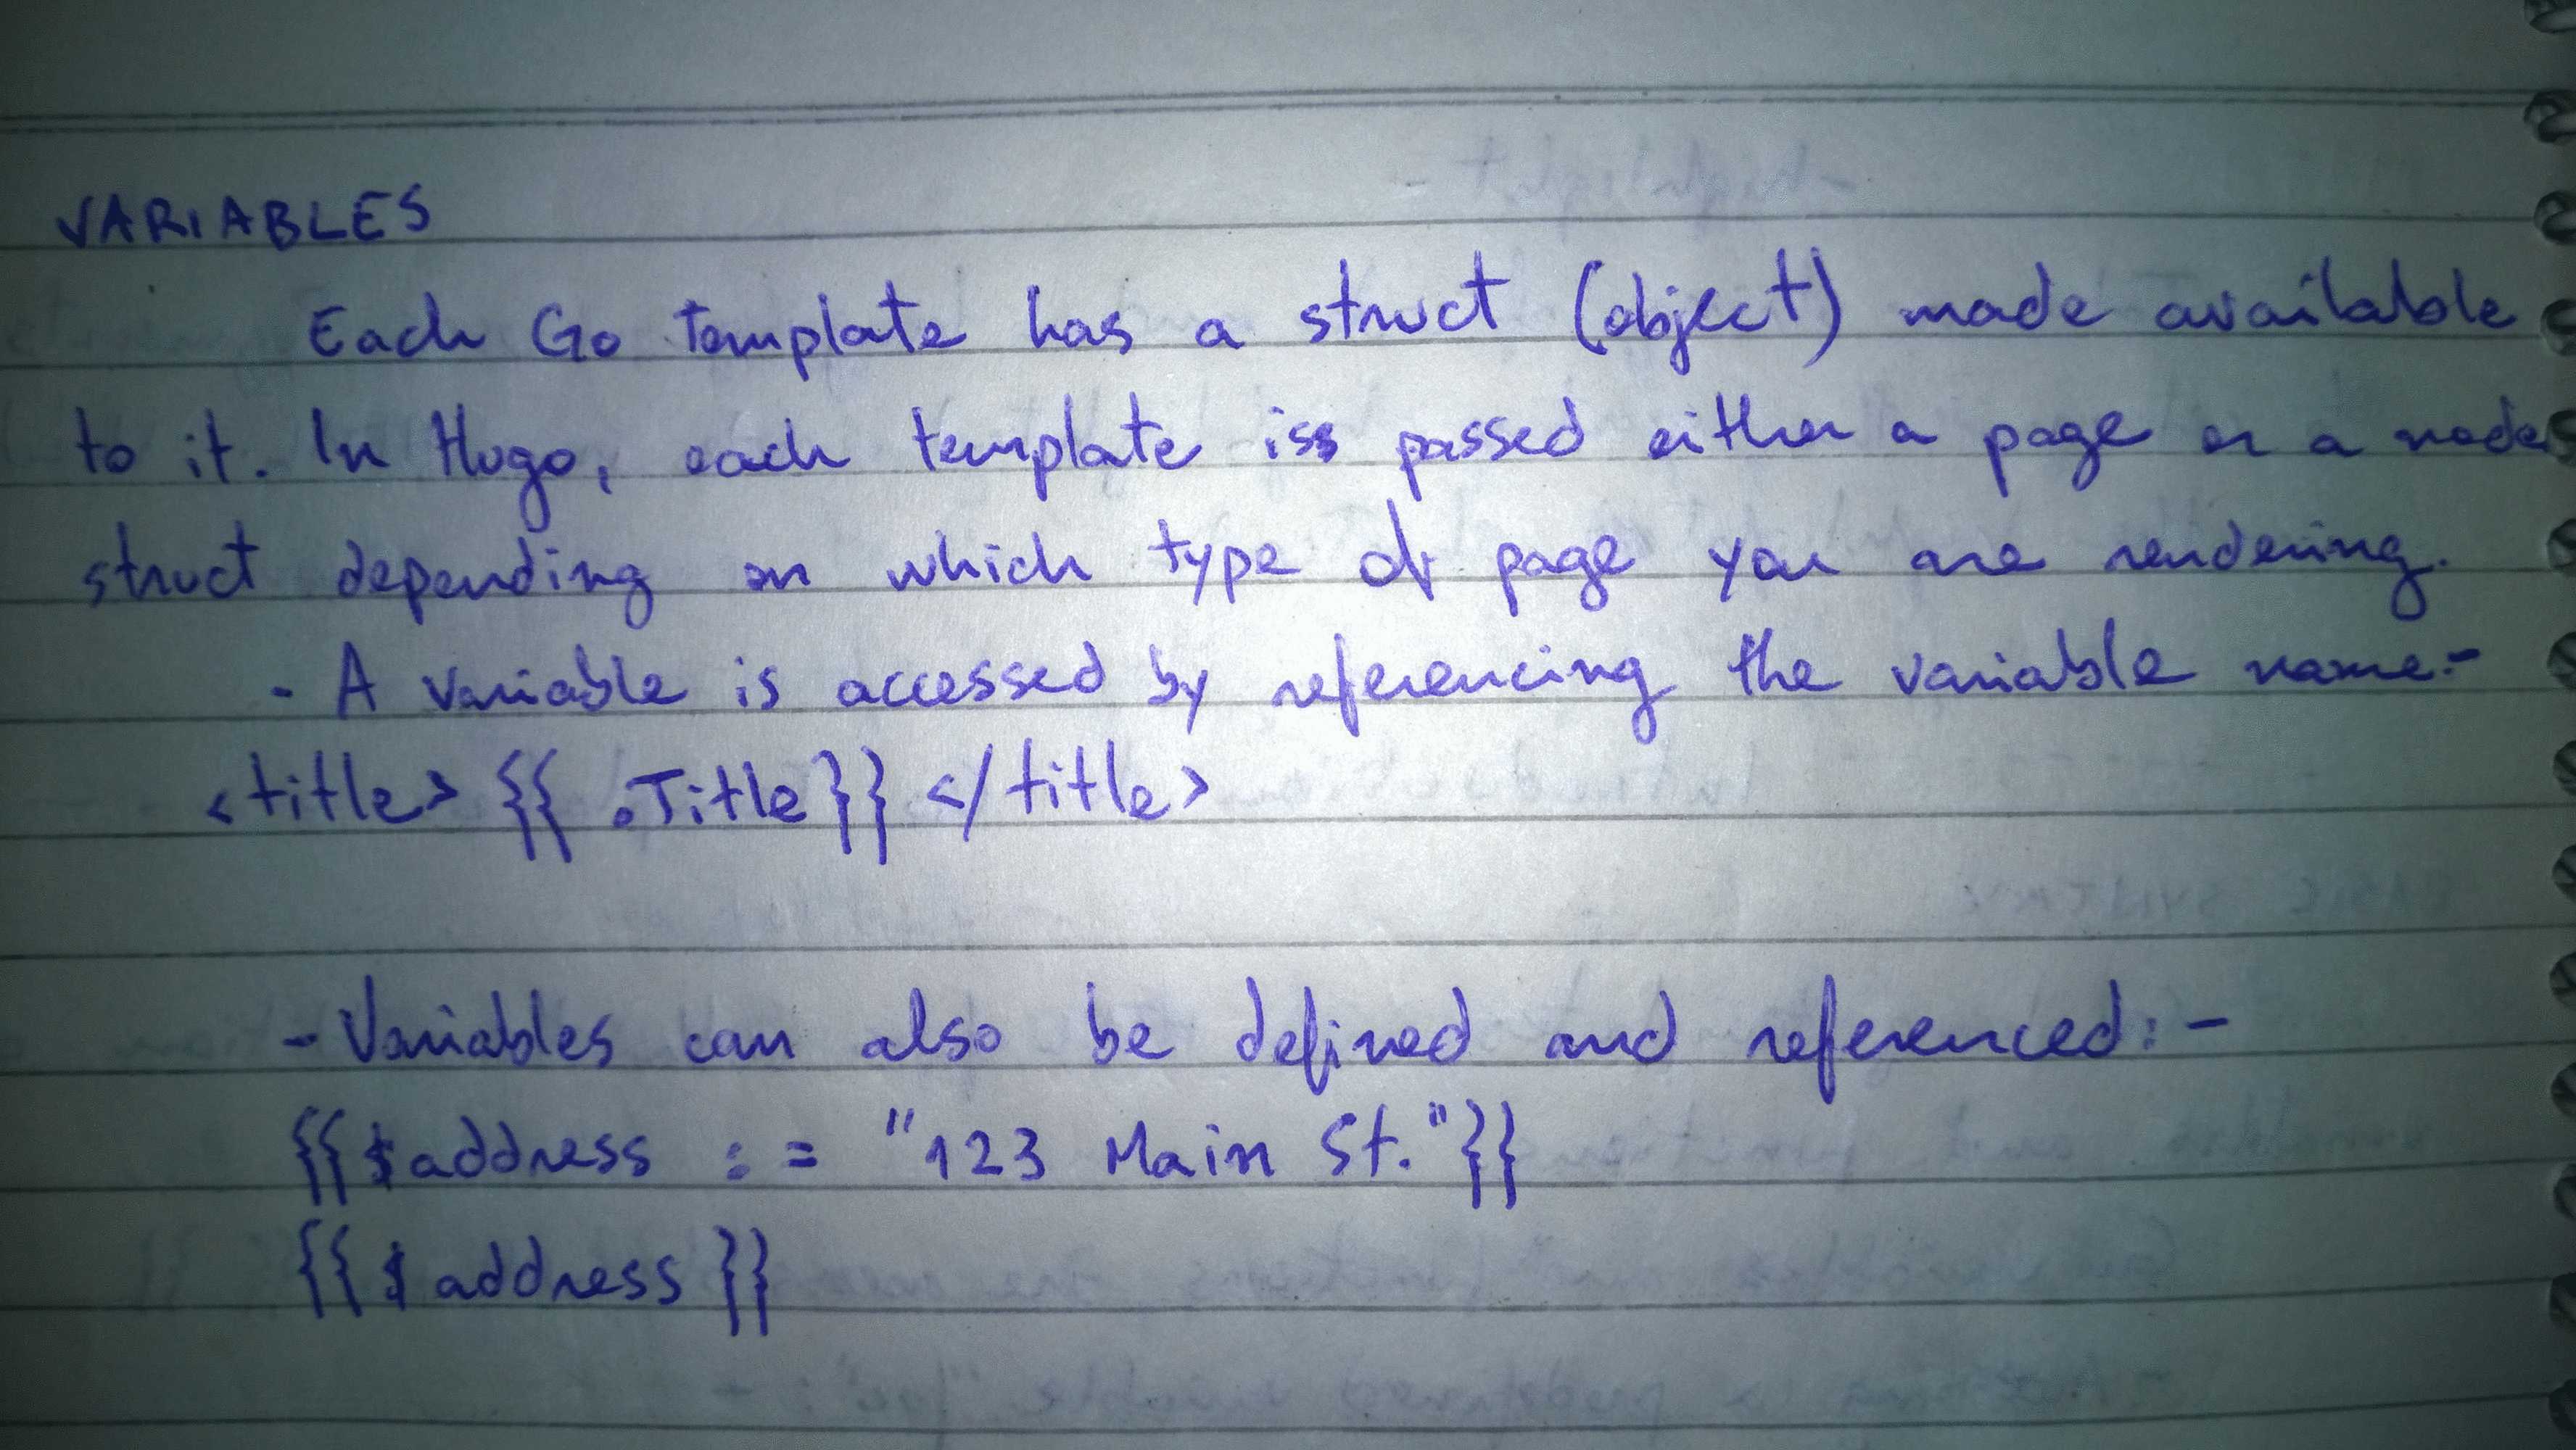 VARIABLES
Each Go template has a struct (object) made available
to it. In Hugo, each template is passed either a page or a node
struct depending on which type of page you are rendering.
- A variable is accessed by referencing the variable name:-
<title> {{ .Title}} </title>
- Variables can also be defined and referenced: -
{{$address := "123 Main St."}}
{{$address}}